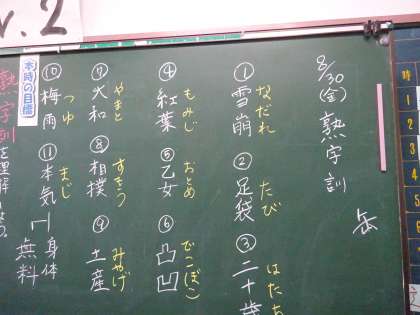 8/30(金) 熟字訓
① 雪崩 なだれ
② 足袋 たび
③ 二十歳 はたあ
④ 紅葉 もみじ
⑤ 乙女 おとめ
⑥ 凸凹 でこぼこ
⑦ 大和 やまと
⑧ 相撲 すもう
⑨ 土産 みやげ
⑩ 梅雨 つゆ
⑪ 本気 まじ
身体
無料
本時の目標
熟字訓を理解しよう。
v.2